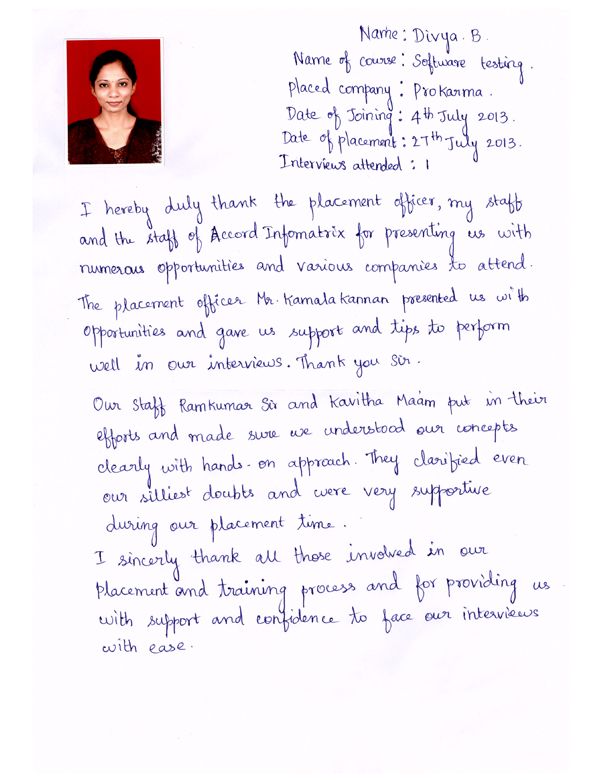 Name: Divya. B.
Name of course: Software testing.
Placed company: Prokarma.
Date of Joining: 4th July 2013.
Date of placement: 27th July 2013.
Interviews attended: 1
I hereby duly thank the placement officer, my staff
and the staff of Accord Infomatrix for presenting us with
numerous opportunities and various companies to attend.
The placement officer Mr. Kamala kannan presented us with
opportunities and gave us support and tips to perform
well in our interviews. Thank you Sir.
Our Staff Ramkumar Sir and Kavitha Maám put in their
efforts and made sure we understood our concepts
clearly with hands-on approach. They clarified even
our silliest doubts and were very supportive
during our placement time.
I sincerly thank all those involved in our
placement and training process and for providing us
with support and confidence to face our interviews
with ease.